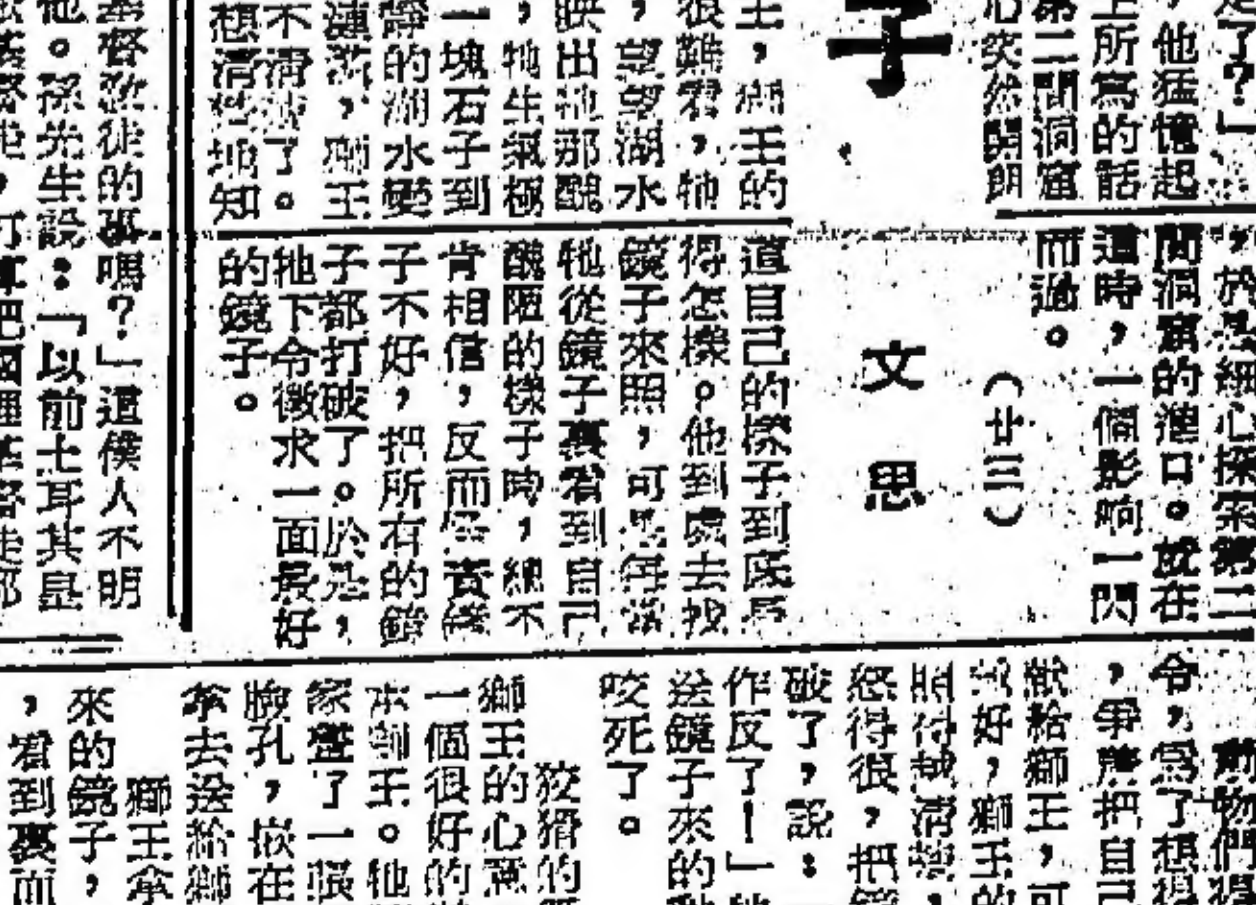 走了?」
，他猛憶起
上所寫的話
第二間洞窟
心突然開朗
，放膽細心探索第二
間洞窟的進口。就在
這時，一個影响一閃
而過。
（廿三）
子
文思
王，湖王的
很難看，牠
，望望湖水
映出牠那醜
，牠生氣極
一塊石子到
靜的湖水變
漣漪，獅王
不清楚了。
想清楚地知
道自己的樣子到底長
得怎樣。他到處去找
鏡子來照，可是每當
牠從鏡子裏看到自己
醜陋的樣子時，總不
肯相信，反而怪責鏡
子不好，把所有的鏡
子都打破了。於是，
牠下令徵求一面最好
的鏡子。
基督教徒的事嗎?」這僕人不明
他。孫先生說：「以前土耳其皇
打算把國裡基督徒都
動物們得
令，爲了想得
，爭着把自己
獻給獅王，可
好，獅王的
照得越清楚，
怒得很，把鏡
破了，說：
作反了！」
送鏡子來的
咬死了。
狡猾的
獅王的心意
一個很好的
來到王。牠
家畫了一張
臉孔，嵌在
拿去送給獅
獅王拿
來的鏡子，
，看到裏面